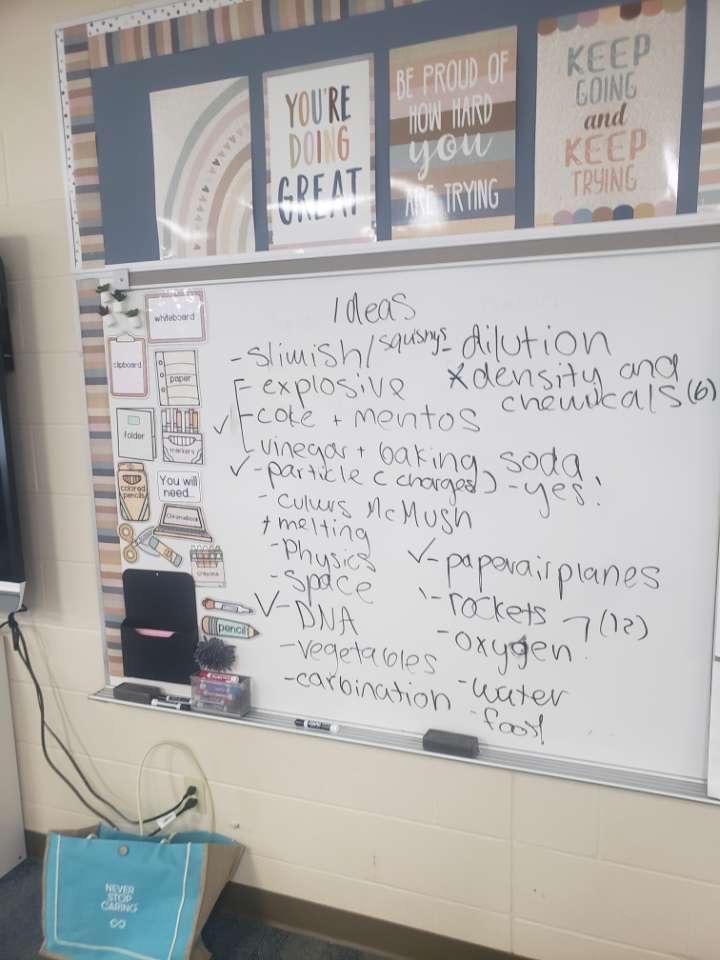 YOU'RE
DOING
GREAT
BE PROUD OF
HOW HARD
you
ARE TRYING
KEEP
GOING
and
KEEP
TRYING
whiteboard
clipboard
paper
folder
markers
colored
pencils
You will
need...
Chromebook
crayons
pencil
Ideas
- slimish/squishys
- explosive
✓ - coke + mentos
- vinegar + baking soda
✓ - particle (charges) - yes!
- culurs McMush
+ melting
- Physics
- Space
✓ - DNA
- vegetables
- carbination
- dilution
* density and
chemicals (6)
✓ - paperairplanes
- rockets 7 (12)
- oxygen
- water
- food
NEVER
STOP
CARING